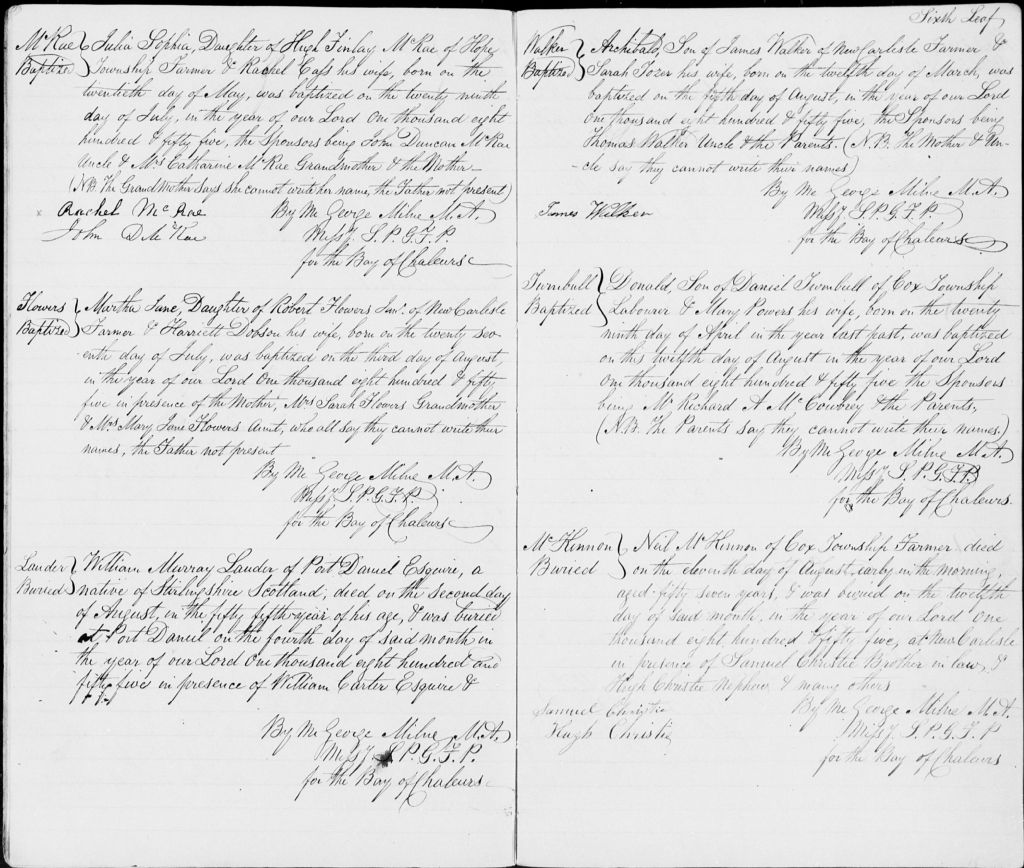 McRae } Julia Sophia, Daughter of Hugh Finlay McRae of Hope
Baptized } Township Farmer & Rachel Cass his wife, born on the
twentieth day of May, was baptized on the twenty ninth
day of July, in the year of our Lord One thousand eight
hundred & fifty five, the Sponsors being John Duncan McRae
Uncle & Mrs Catharine McRae Grandmother & the Mother
(N.B. The GrandMother Says She cannot write her name, the Father not present)
x Rachel McRae By Me George Milne M.A.
John D McRae Missy. S.P.G.F.P.
for the Bay of Chaleurs
Flowers } Martha Jane, Daughter of Robert Flowers Junr. of New Carlisle
Baptized } Farmer & Harriett Dobson his wife, born on the twenty sev-
enth day of July, was baptized on the third day of August,
in the year of our Lord One thousand eight hundred & fifty
five in presence of the Mother, Mrs Sarah Flowers Grandmother
& Mrs Mary Jane Flowers Aunt, who all say they cannot write their
names, the Father not present
By Me George Milne M.A.
Missy. S.P.G.F.P.
for the Bay of Chaleurs
Lauder } William Murray Lauder of Port Daniel Esquire, a
Buried } native of Stirlingshire Scotland, died on the Second day
of August, in the fifty fifth year of his age, & was buried
at Port Daniel on the fourth day of said month in
the year of our Lord One thousand eight hundred and
fifty five in presence of William Carter Esquire &
By Me George Milne M.A.
Missy. S.P.G.F.P.
for the Bay of Chaleurs
Sixth Leaf
Walker } Archibald, Son of James Walker of New Carlisle Farmer &
Baptized } Sarah Tozer his wife, born on the twelfth day of March, was
baptized on the fifth day of August, in the year of our Lord
One thousand eight hundred & fifty five, the Sponsors being
Thomas Walker Uncle & the Parents. (N.B. The Mother & Un-
-cle say they cannot write their names)
By Me George Milne M.A.
James Walker Missy. S.P.G.F.P.
for the Bay of Chaleurs
Turnbull } Donald, Son of Daniel Turnbull of Cox Township
Baptized } Labourer & Mary Powers his wife, born on the twenty
ninth day of April in the year last past, was baptized
on this twelfth day of August in the year of our Lord
One thousand eight hundred & fifty five the Sponsors
being Mr Richard A McCowbrey & the Parents,
(N.B. The Parents say they cannot write their names.)
By Me George Milne M.A.
Missy. S.P.G.F.P.
for the Bay of Chaleurs.
McKinnon } Neil McKinnon of Cox Township Farmer died
Buried } on the eleventh day of August, early in the morning,
aged fifty seven years, & was buried on the twelfth
day of said month, in the year of our Lord One
thousand eight hundred & fifty five, at New Carlisle
in presence of Samuel Christie Brother in law, &
Hugh Christie Nephew & many others
Samuel Christie By Me George Milne M.A.
Hugh Christie Missy. S.P.G.F.P
for the Bay of Chaleurs